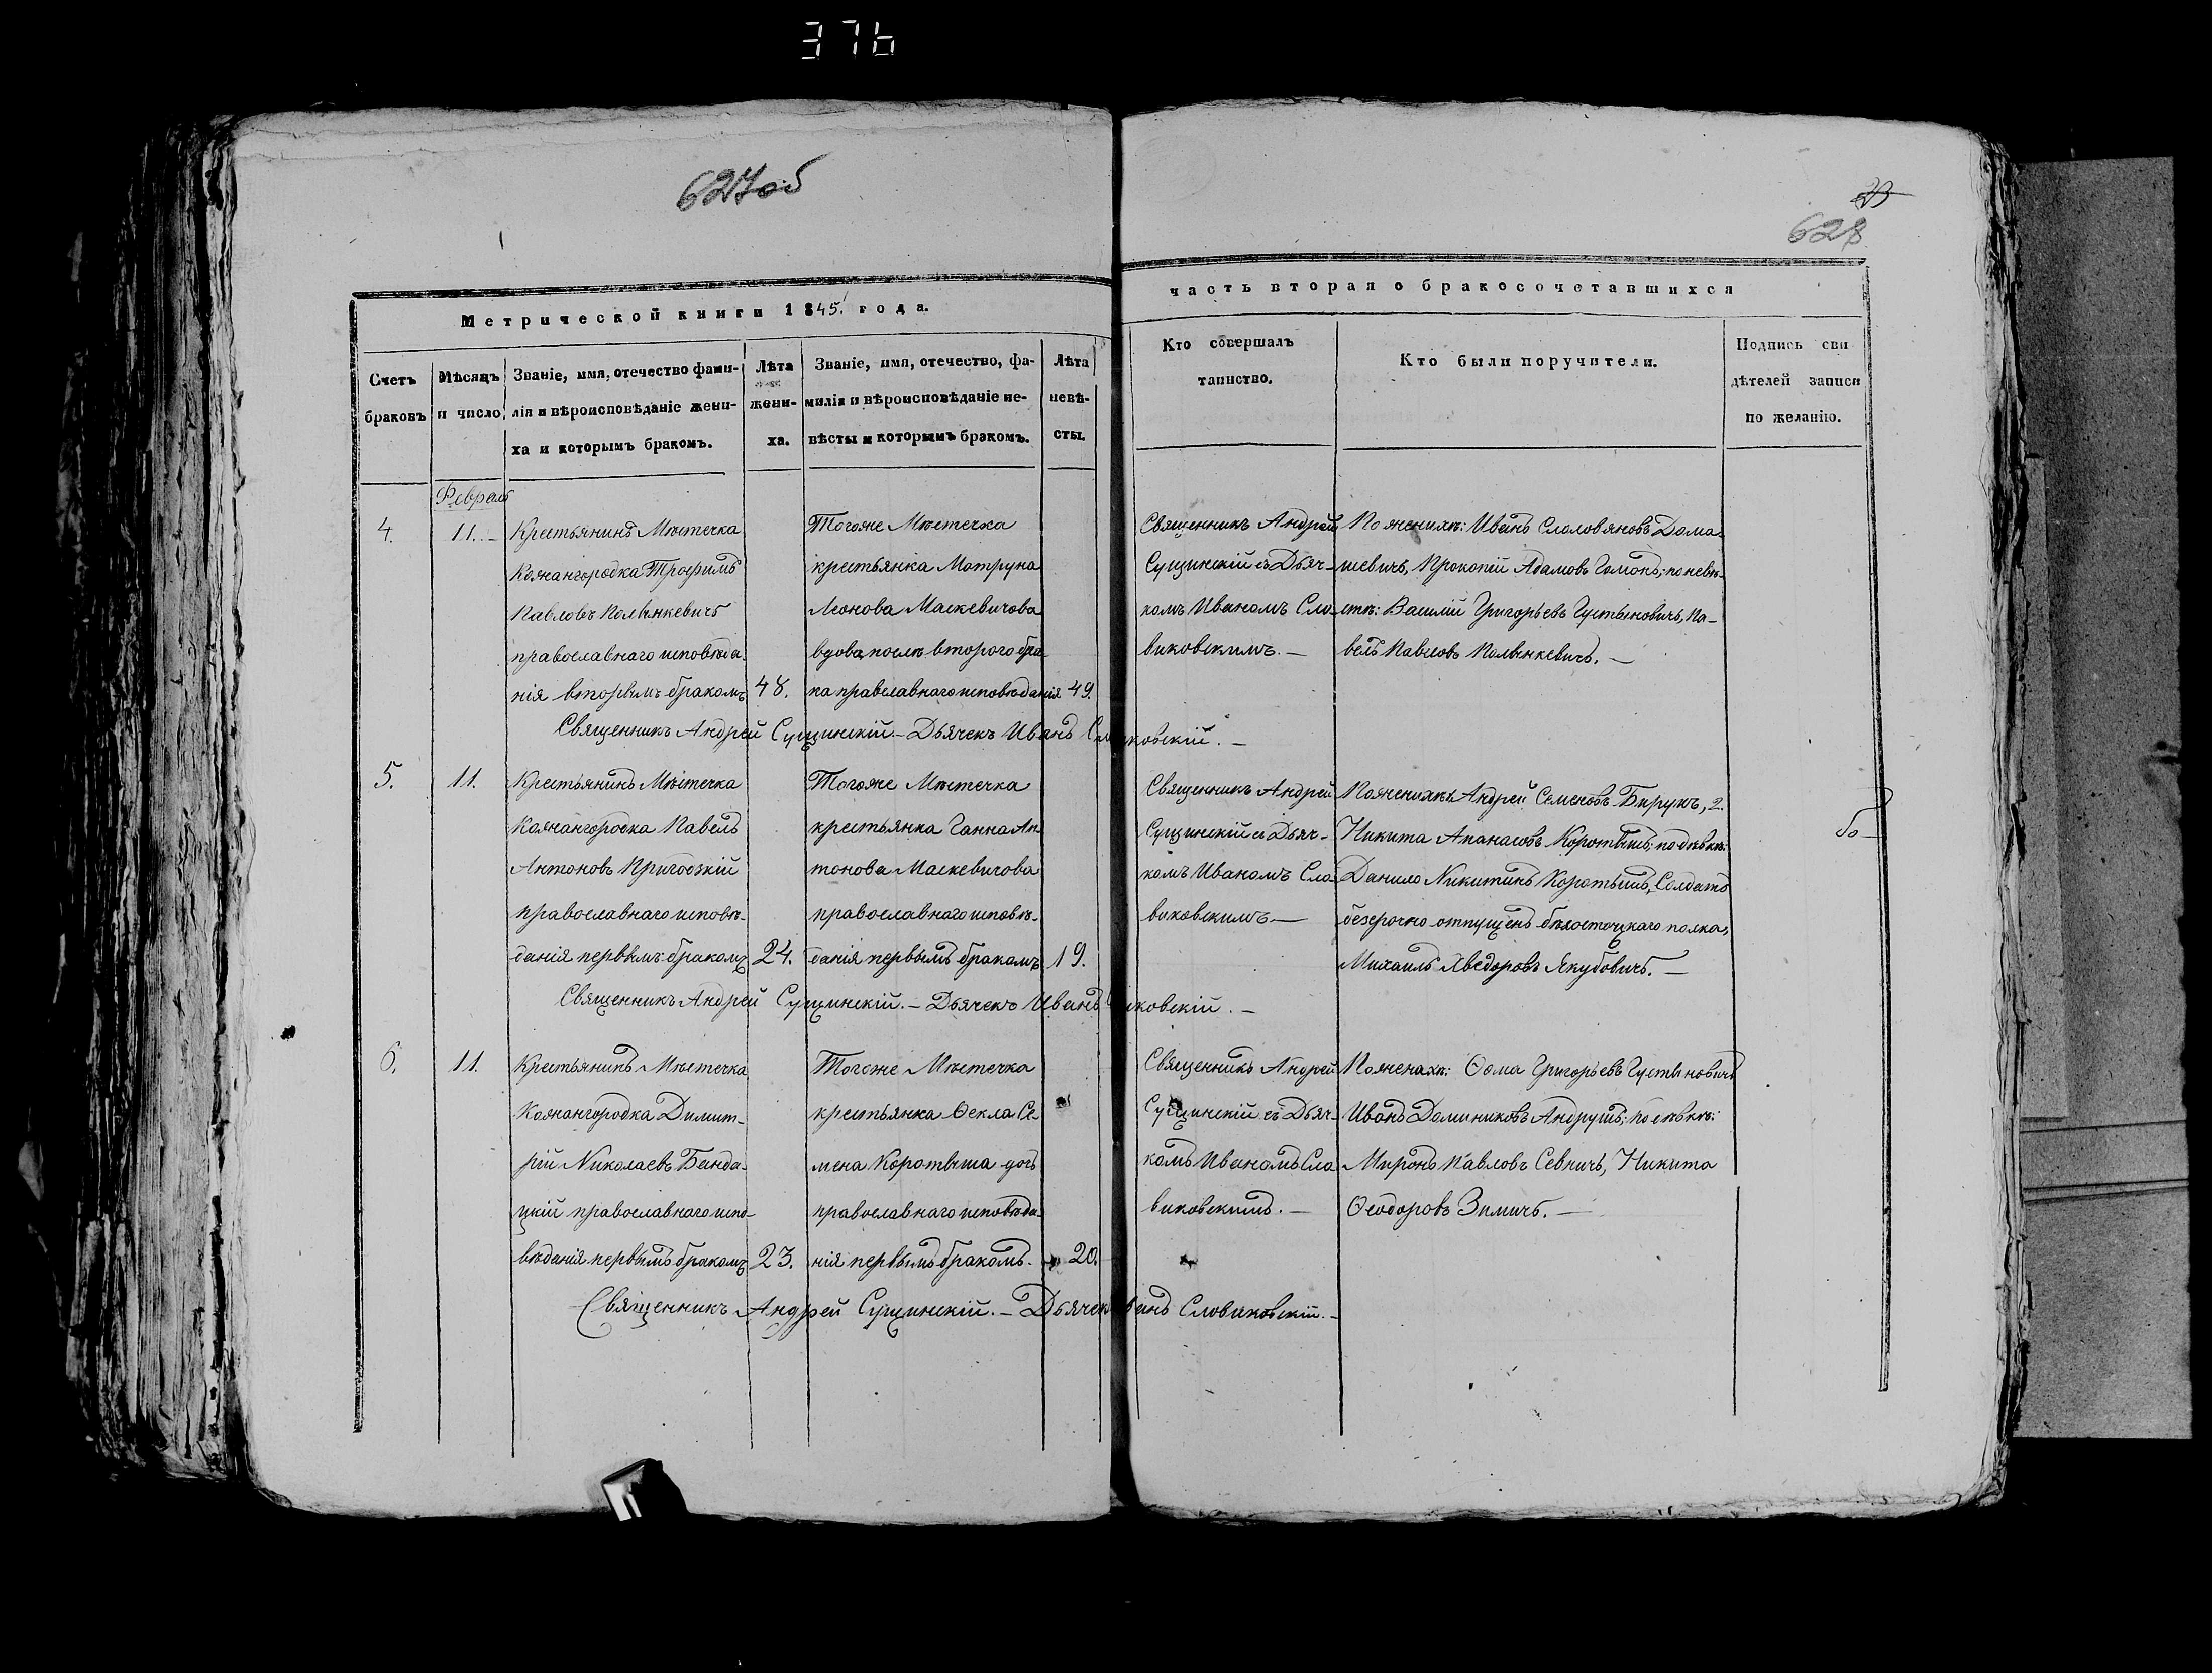 376
627об
23
628
Метрической книги 1845. года.
часть вторая о бракосочетавшихся
Счетъ
браковъ
Мѣсяцъ
и число
Званіе, имя, отечество фами-
лія и вѣроисповѣданіе жени-
ха и которымъ бракомъ.
Лѣта
жени-
ха.
Званіе, имя, отечество, фа-
милія и вѣроисповѣданіе не-
вѣсты и которымъ бракомъ.
Лѣта
невѣ-
сты.
Кто совершалъ
таинство.
Кто были поручители.
Подпись сви
дѣтелей записи
по желанію.
Февраль
4.
11.
Крестьянинъ Мѣстечка
Кожангородка Трофимъ
Павловъ Полынкевичъ
православнаго исповѣда-
нія вторымъ бракомъ
48.
Тогоже Мѣстечка
крестьянка Матруна
Леонова Маскевичова
вдова послѣ второго бра-
ка православнаго исповѣданія
49.
Священникъ Андрей
Сущинскій съ Дьяч-
комъ Иваномъ Сло-
виковскимъ. —
По женихѣ: Иванъ Дома-
шевичъ, Прокопій Адамовъ Гамонъ; по невѣ-
стѣ: Василій Григорьевъ Густыновичъ, Па-
велъ Павловъ Полынкевичъ. —
Священникъ Андрей Сущинскій. — Дьячекъ Иванъ Словиковскій. —
5.
11.
Крестьянинъ Мѣстечка
Кожангородка Павелъ
Антоновъ Пригодскій
православнаго исповѣ-
данія первымъ бракомъ
24.
Тогоже Мѣстечка
крестьянка Ганна Ан-
тонова Маскевичова
православнаго исповѣ-
данія первымъ бракомъ
19.
Священникъ Андрей
Сущинскій съ Дьяч-
комъ Иваномъ Сло-
виковскимъ —
По женихѣ Андрей Семеновъ Бирукъ, 2.
Никита Апанасовъ Коротышъ; по дѣвкѣ:
Данило Никитинъ Коротышъ, Солдатъ
безсрочно отпущенъ бѣлостоцкаго полка,
Михаилъ Хведоровъ Якубовичъ. —
Священникъ Андрей Сущинскій. — Дьячекъ Иванъ Словиковскій. —
6.
11.
Крестьянинъ Мѣстечка
Кожангородка Димит-
рій Николаевъ Банда-
цкій православнаго испо-
вѣданія первымъ бракомъ
23.
Тогоже Мѣстечка
крестьянка Ѳекла Се-
мена Коротыша дочь
православнаго исповѣда-
нія первымъ бракомъ.
20.
Священникъ Андрей
Сущинскій съ Дьяч-
комъ Иваномъ Сло
виковскимъ. —
По женихѣ: Ѳома Григорьевъ Густыновичъ
Иванъ Доминиковъ Андрушъ; по дѣвкѣ:
Миронъ Павловъ Севничъ, Никита
Ѳеодоровъ Зимичъ. —
Священникъ Андрей Сущинскій. — Дьячекъ Иванъ Словиковскій. —